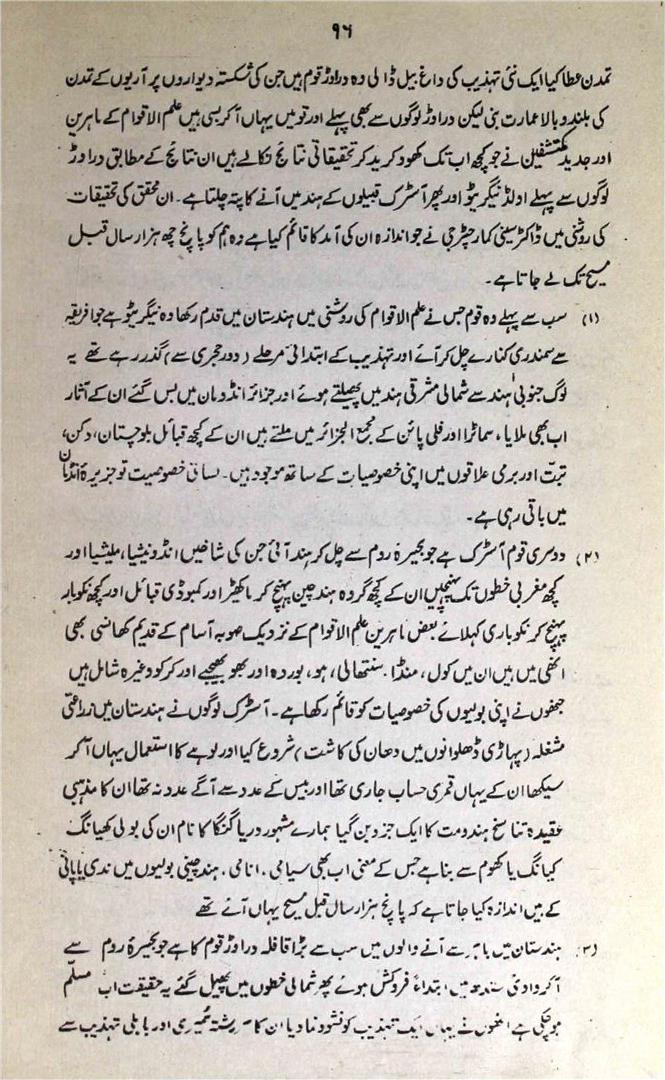 ۹۶
تمدن عطا کیا ایک نئی تہذیب کی داغ بیل ڈالی وہ دراوڑ قوم ہیں جن کی شکستہ دیواروں پر آریوں کے تمدن
کی بلند و بالا عمارت بنی لیکن دراوڑ لوگوں سے بھی پہلے اور قومیں یہاں آکر بسی ہیں علم الاقوام کے ماہرین
اور جدید مکتشفین نے جو کچھ اب تک کھود کرید کر تحقیقاتی نتائج نکالے ہیں ان نتائج کے مطابق دراوڑ
لوگوں سے پہلے اولڈ نیگریٹو اور پھر آسٹرک قبیلوں کے ہند میں آنے کا پتہ چلتا ہے۔ ان محقق کی تحقیقات
کی روشنی میں ڈاکٹر سینی کمار چٹرجی نے جو اندازہ ان کی آمد کا قائم کیا ہے وہ ہم کو پانچ چھ ہزار سال قبل
مسیح تک لے جاتا ہے۔
(۱) سب سے پہلے وہ قوم جس نے علم الاقوام کی روشنی میں ہندستان میں قدم رکھا وہ نیگریٹو ہے جو افریقہ
سے سمندری کنارے چل کر آئے اور تہذیب کے ابتدائی مرحلے (دور حجری سے) گذر رہے تھے یہ
لوگ جنوبی ہند سے شمالی مشرقی ہند میں پھیلتے ہوئے اور جزائر انڈومان میں بس گئے ان کے آثار
اب بھی ملایا، سماٹرا اور فلی پائن کے مجمع الجزائر میں ملتے ہیں ان کے کچھ قبائل بلوچستان، دکن،
تبت اور برمی علاقوں میں اپنی خصوصیات کے ساتھ موجود ہیں۔ لسانی خصوصیت تو جزیرۂ انڈمان
میں باقی رہی ہے۔
(۲) دوسری قوم آسٹرک ہے جو بحیرۂ روم سے چل کر ہند آئی جن کی شاخیں انڈونیشیا، ملیشیا اور
کچھ مغربی خطوں تک پہنچیں ان کے کچھ گروہ ہند چین پہنچ کر ماکھیر اور کمبوڈی قبائل اور کچھ نکوبار
پہنچ کر نکوباری کہلائے بعض ماہرین علم الاقوام کے نزدیک صوبہ آسام کے قدیم کھاسی بھی
انھی میں ہیں ان میں کول، منڈا، سنتھالی، ہو، بوردہ اور بھو بھیجیے اور کرکو وغیرہ شامل ہیں
جنھوں نے اپنی بولیوں کی خصوصیات کو قائم رکھا ہے۔ آسٹرک لوگوں نے ہندستان میں زراعتی
مشغلہ (پہاڑی ڈھلوانوں میں دھان کی کاشت) شروع کیا اور لوہے کا استعمال یہاں آکر
سیکھا ان کے یہاں قمری حساب جاری تھا اور بیس کے عدد سے آگے عدد نہ تھا ان کا مذہبی
عقیدہ تناسخ ہندومت کا ایک جز بن گیا ہمارے مشہور دریا گنگا کا نام ان کی بولی کھیانگ
کیانگ یا کھوم سے بنا ہے جس کے معنی اب بھی سیامی، انامی، ہند چینی بولیوں میں ندی یا پانی
کے ہیں اندازہ کیا جاتا ہے کہ پانچ ہزار سال قبل مسیح یہاں آئے تھے
(۳) ہندستان میں باہر سے آنے والوں میں سب سے بڑا قافلہ دراوڑ قوم کا ہے جو بحیرۂ روم سے
آکر وادی سندھ میں ابتداءً فروکش ہوئے پھر شمالی خطوں میں پھیل گئے یہ حقیقت اب مسلّم
ہو چکی ہے انھوں نے یہاں ایک تہذیب کو نشوونما دیا ان کا رشتہ سُمیری اور بابلی تہذیب سے